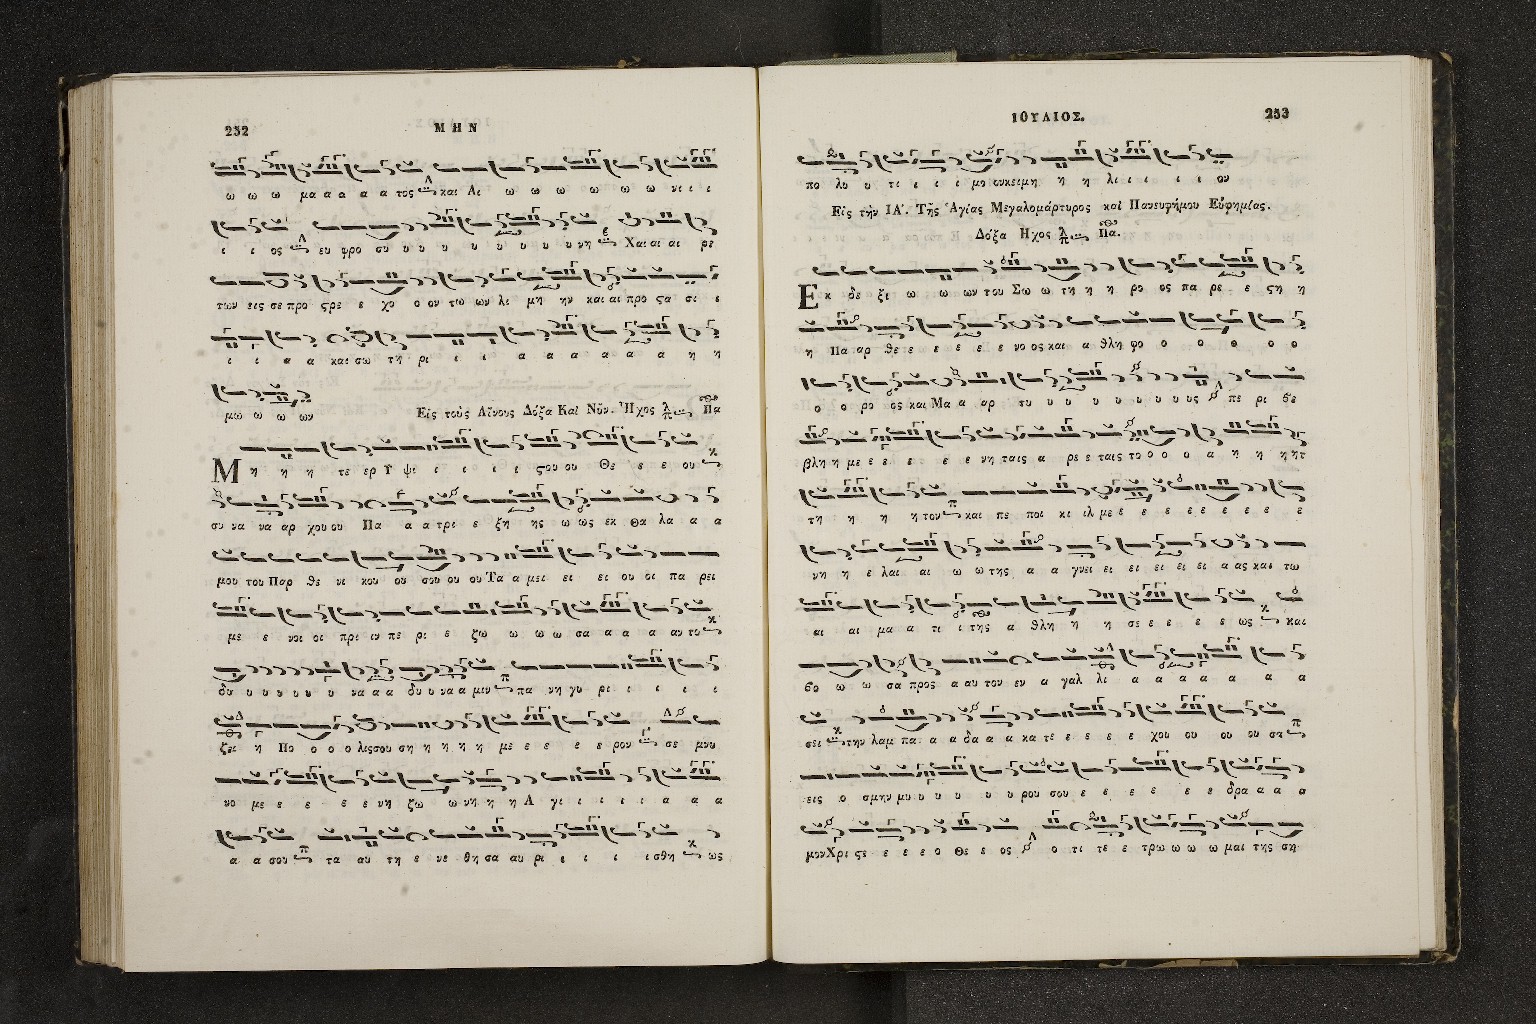 252
ΜΗΝ
ω ω ω μα α α α α τος και Λι ω ω ω ω ω ω νι ι ι
ι ι ος ευ φρο συ υ υ υ υ υ υ υ υ νη Χαι αι αι ρε
των εις σε προ ςρε ε χο ο ον τω ων λι μη ην και αι προ ςα σι ε
ι ι α α και σω τη ρι ι ι α α α α α α η η
μω ω ω ων
Εἰς τοὺς Αἴνους Δόξα Καὶ Νῦν. Ἦχος Πα
Μη η η τε ερ Υ ψι ι ι ι ι ςου ου Θε ε ε ου
συ να να αρ χου ου Πα α α τρι ε ξη ης ω ως εκ θα λα α α
μου του Παρ θε νι κου ου σου ου ου Τα α μει ει ει ου οι πα ρει
με ε νοι οι πρι ιν πε ρι ε ζω ω ω ω σα α α α αυ το
δυ υ υ υ υ υ να α α δυ υ να α μιν πα νη γυ ρι ι ι ι ι
ζει η Πο ο ο ο λις σου ση η η η η με ε ε ε ε ρον σε μνυ
νο με ε ε ε ε ε νη ζω ω νη η η Α γι ι ι ι ι α α α
α α σου τα αυ τη ε νε θη σα αυ ρι ι ι ι ι σθη ως
ΙΟΥΛΙΟΣ.
253
πο λυ υ τι ι ι ι μο ου κει μη η η λι ι ι ι ι ον
Εἰς τὴν ΙΑ'. Τῆς Ἁγίας Μεγαλομάρτυρος καὶ Πανευφήμου Εὐφημίας.
Δόξα Ηχος Πα.
Εκ δε ξι ω ω ων του Σω ω τη η η ρο ος πα ρε ε ςη η
η Πα αρ θε ε ε ε ε ε νο ος και α θλη φο ο ο ο ο ο
ο ο ρο ος και Μα α αρ τυ υ υ υ υ υ υ υς πε ρι βε
βλη η με ε ε ε ε ε νη ταις α ρε ε ταις το ο ο ο α η η η ητ
τη η η η τον και πε ποι κι ιλ με ε ε ε ε ε ε ε ε
νη η ε λαι αι ω ω της α α γνει ει ει ει ει ει α ας και τω
αι αι μα α τι ι της α θλη η η σε ε ε ε ε ως και
βο ω ω σα προς α αυ τον εν α γαλ λι α α α α α α α
σει την λαμ πα α α δα α α κα τε ε ε ε ε ε χου ου ου ου σα
εις ο σμην μυ υ υ υ υ υ ρου σου ε ε ε ε ε ε δρα α α α
μον Χρι ςε ε ε ε ο Θε ε ος ο τι τε ε τρω ω ω ω μαι της ση